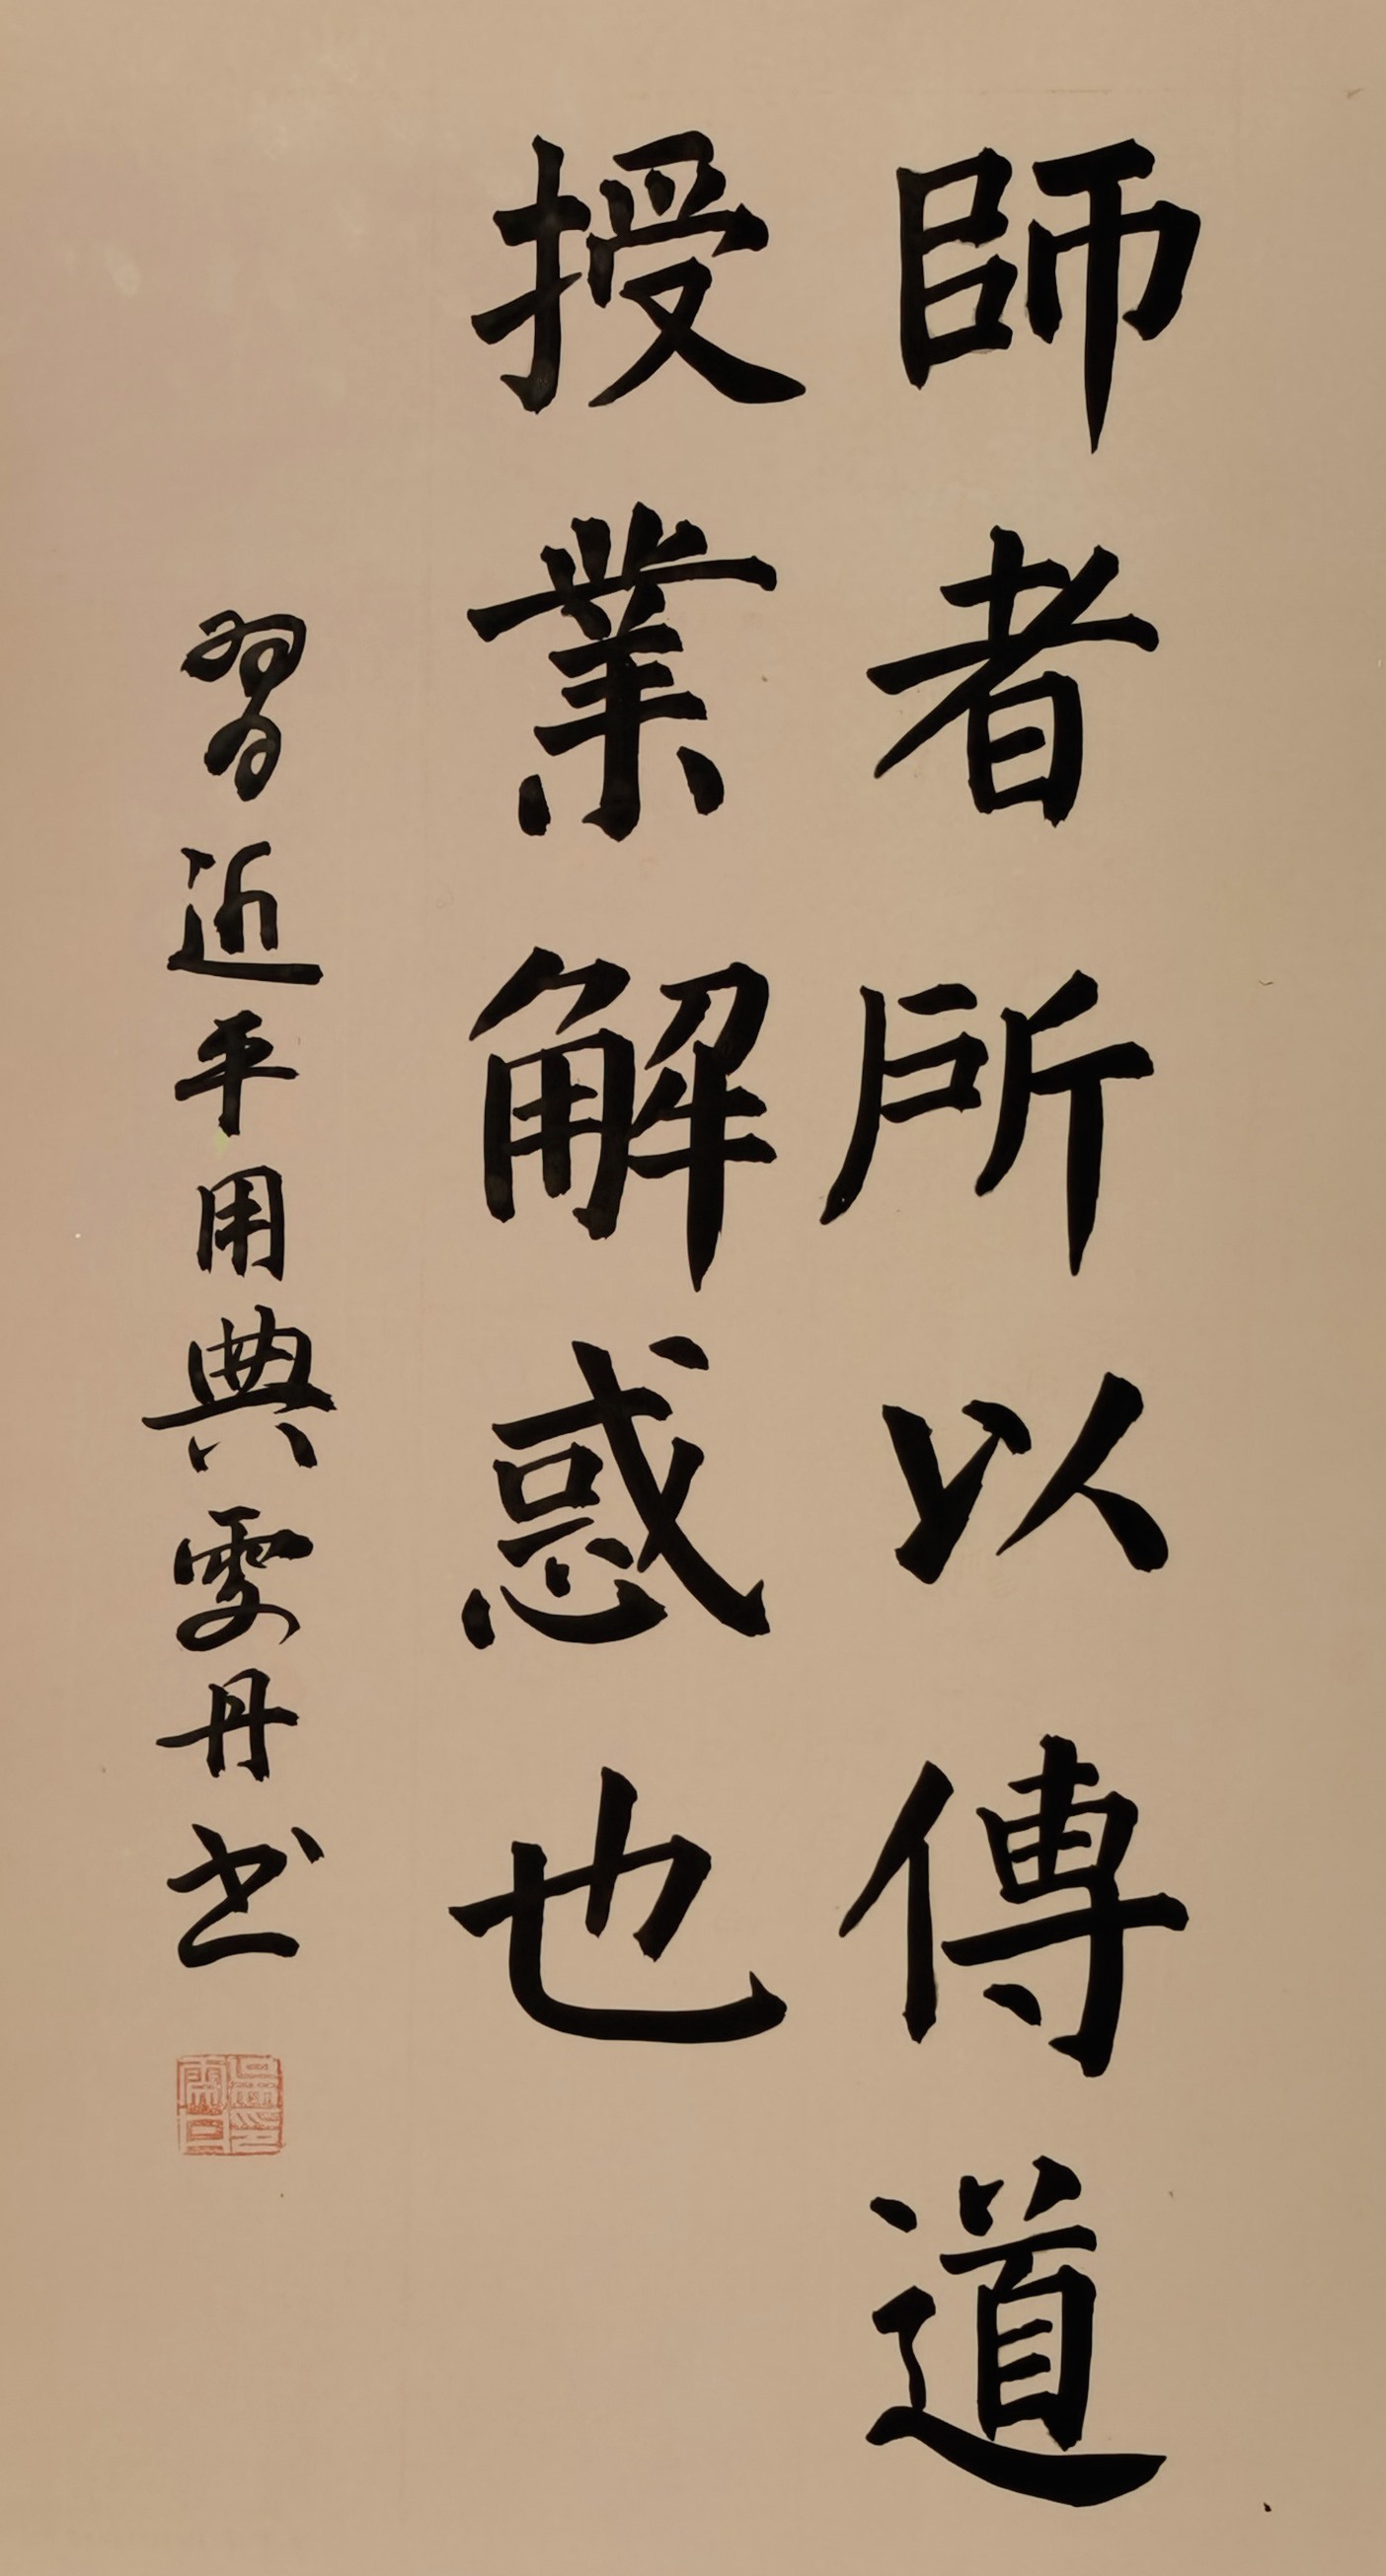 師者所以傳道
授業解惑也
習近平用典雯丹书